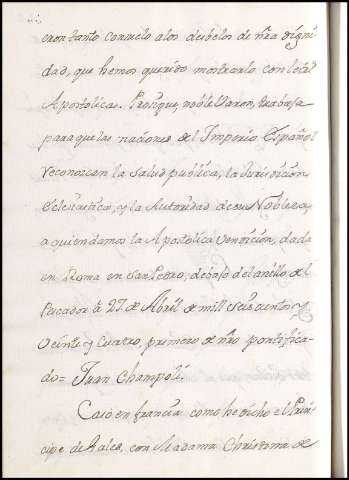 eron tanto consuelo a los desbelos de nra digni
dad, que hemos querido mostrarlo con letras
Apostolicas. Prosigue, noble Varon, trabaja
para que las naciones del Imperio Español
reconozcan la Salud publica, la Jurisdicion
Eclesiastica, y la Autoridad de su Nobleza,
a quien damos la Apostolica Vendicion, dada
en Roma en San Pedro, debajo del anillo del
Pescador à 27 de Abril de mill Seiscientos y
Veinte y Cuatro, primero de nro pontifica-
do = Juan Champoli.
Casó en francia como he dicho el Prin-
cipe de Gales, con Madama Christerna de